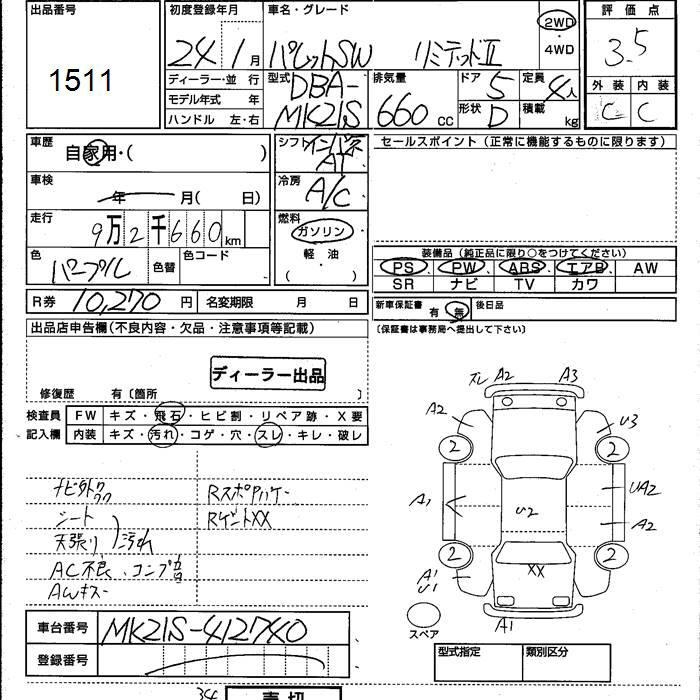 出品番号
1511
初度登録年月
24年1月
車名・グレード
パレットSW リミテッドⅡ
2WD
・
4WD
評価点
3.5
ディーラー・並行
モデル年式 年
ハンドル 左・右
型式
DBA-
MK21S
排気量
660cc
ドア
5
定員
4人
形状
D
積載
kg
外装 内装
C C
車歴
自家用・( )
車検
年 月( 日)
走行
9万2千660km
色
パープル
色替
色コード
シフト
インパネ
AT
冷房
A/C
燃料
ガソリン
軽・油
( )
セールスポイント(正常に機能するものに限ります)
装備品(純正品に限り○をつけてください)
PS PW ABS エアB AW
SR ナビ TV カワ
R券 10,270円 名変期限 月 日
新車保証書 有 無 後日品
(保証書は事務局へ提出して下さい)
出品店申告欄(不良内容・欠品・注意事項等記載)
ディーラー出品
修復歴 有〔箇所 〕
検査員
記入欄
FW キズ・飛石・ヒビ割・リペア跡・X要
内装 キズ・汚れ・コゲ・穴・スレ・キレ・破レ
シート
天張り
汚れ
AC不良、コンプ
AWキズ
RゲートXX
ズレ A2 A3
A2 U3
2 2
A1 U2 UA2
A2
2 2
A1
U1
XX
A1
スペア
車台番号 MK21S-412740
登録番号
型式指定 類別区分
売切